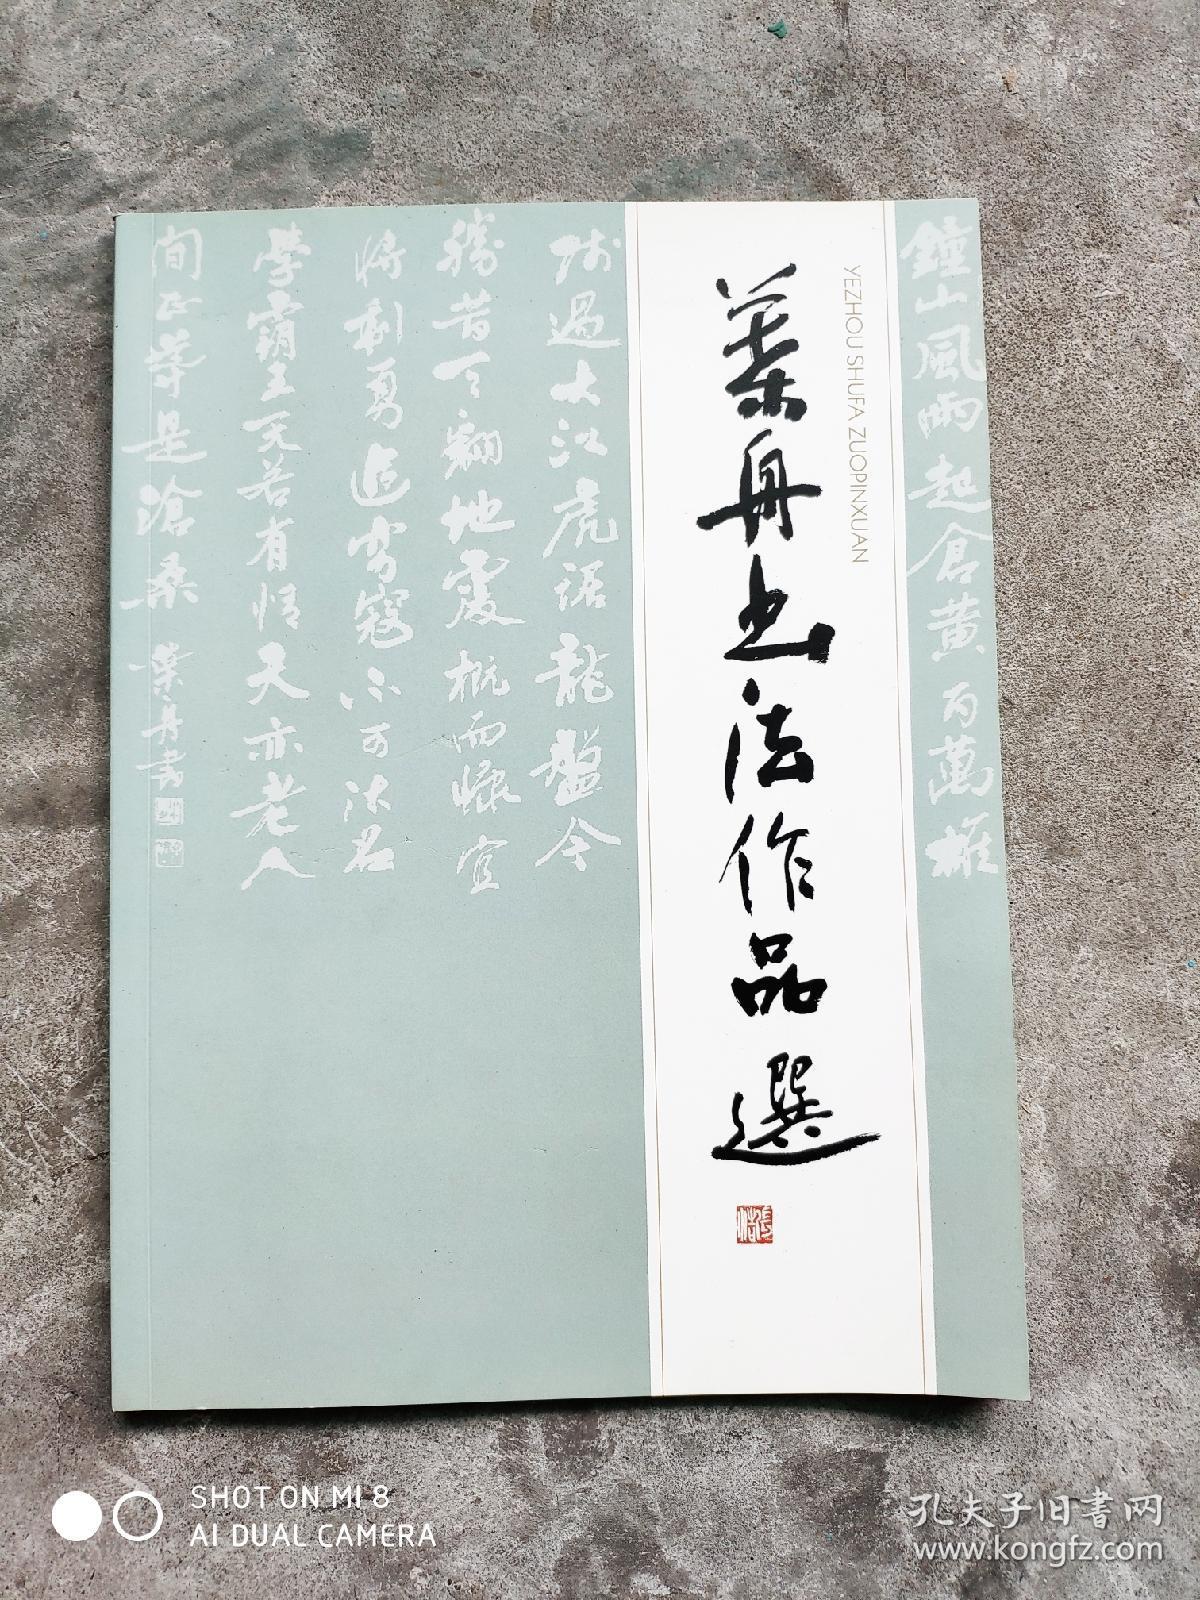 鐘山風雨起倉黃百萬雄
YEZHOU SHUFA ZUOPINXUAN
葉舟书法作品選
师過大江虎踞龍盤今
勝昔天翻地覆慨而慷宜
将剩勇追窮寇不可沽名
學霸王天若有情天亦老人
间正道是滄桑 葉舟書
SHOT ON MI 8
AI DUAL CAMERA
孔夫子旧書网
www.kongfz.com